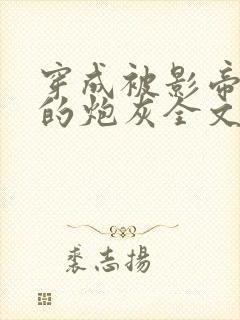 穿成被影帝
的炮灰全文
裘志揚